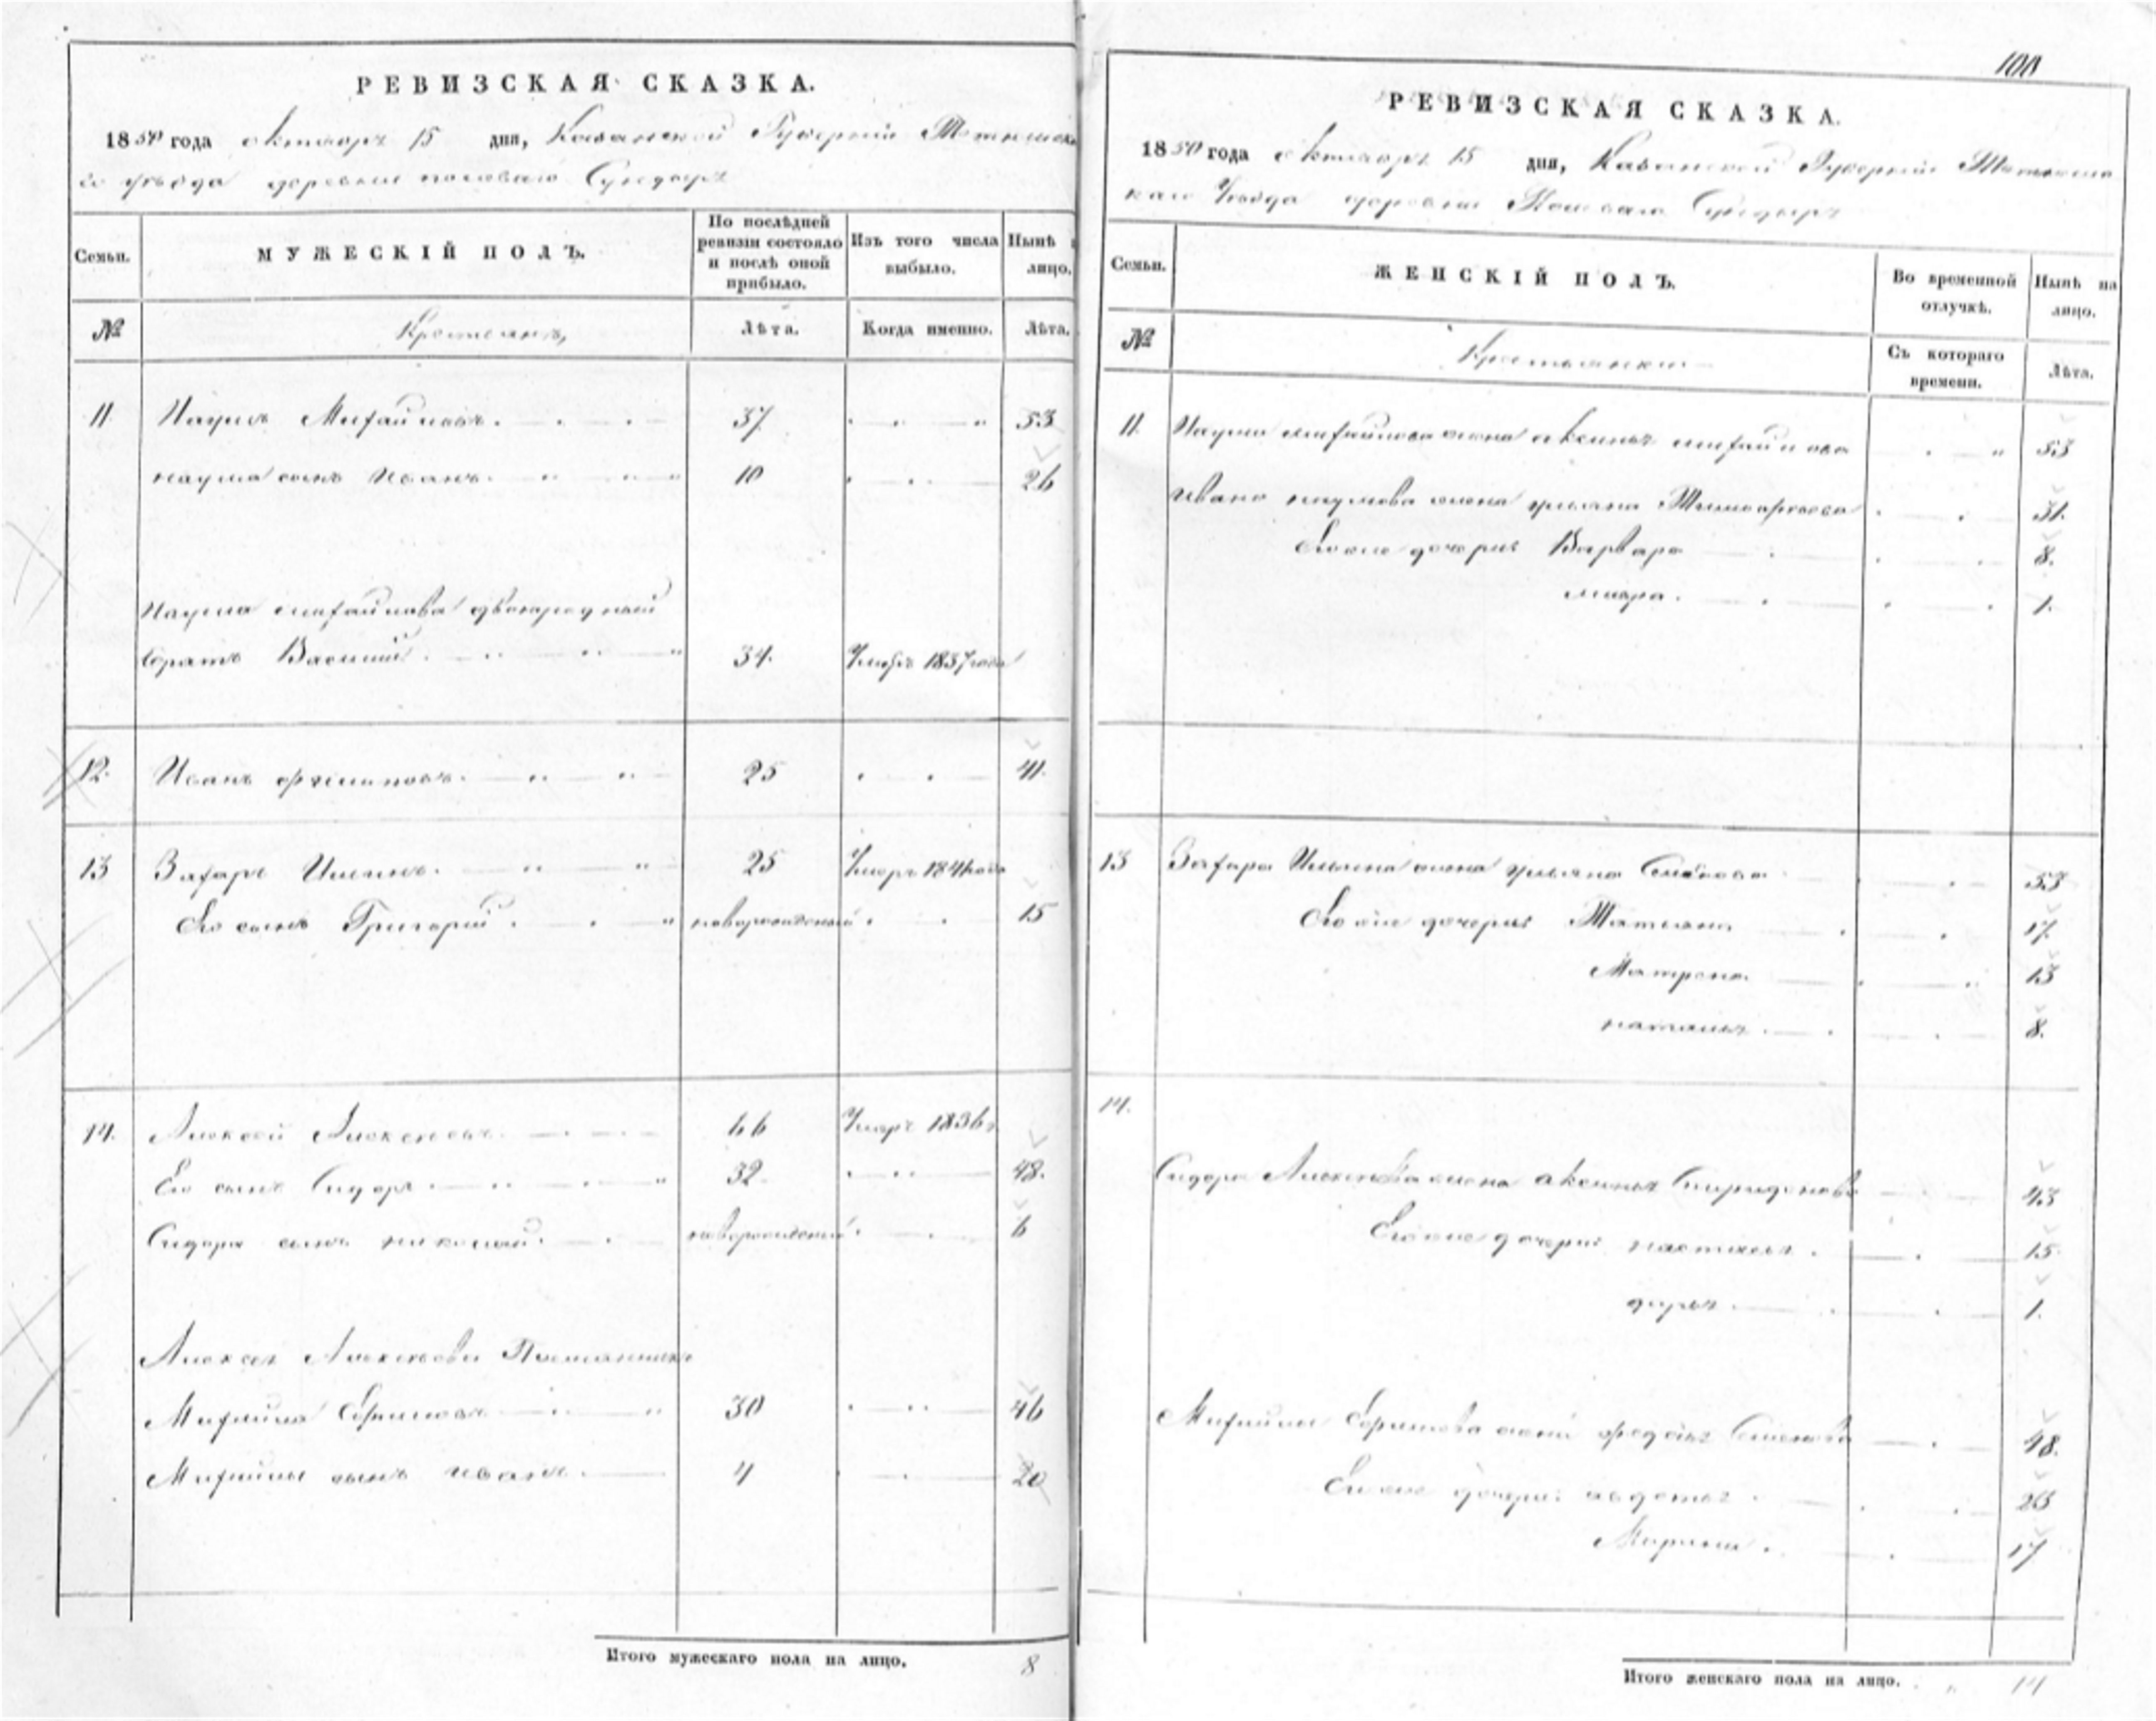 РЕВИЗСКАЯ СКАЗКА.
1850 года октября 15 дня, Казанской Губернии
уезда деревни Сундырь
Семьи. МУЖЕСКІЙ ПОЛЪ. По послѣдней ревизіи состояло и послѣ оной прибыло. Изъ того числа выбыло. Нынѣ лицо.
№ Крестьянъ Лѣта. Когда именно. Лѣта.
11 Наумъ Михайловъ 37 53
наума сынъ Иванъ 10 26
Наума михайлова двоюродный
братъ Василий 34. Умеръ 1837 года
12. Иванъ 25 41.
13 Захаръ Ильинъ 25 Умеръ 1841 года
Его сынъ Григорий новорожденный 15
14. Алексей Алексеевъ 66 Умеръ 1836
Его сынъ Сидоръ 32 48.
Сидора сынъ николай новорожденный 6
Алексея Алексеева Племянникъ
Михайла Ефимовъ 30 46
Михайлы сынъ иванъ 4 20
Итого мужескаго пола на лицо. 8
100
РЕВИЗСКАЯ СКАЗКА.
1850 года октября 15 дня, Казанской Губернии
каго Уезда деревни Сундырь
Семьи. ЖЕНСКІЙ ПОЛЪ. Во временной отлучкѣ. Нынѣ на лицо.
№ Крестьянки Съ котораго времени. Лѣта.
11. Наума михайлова жена аксинья михайлова 53
Ивана наумова жена ульяна Тимофеева 31.
Его же дочери Варвара 8.
1.
13 Захара Ильина жена ульяна Семенова 53
Его же дочери Татьяна 17.
Матрена 13
наталья 8.
14.
Сидора Алексеева жена аксинья Спиридонова 43
Его же дочери настасья 15
дарья 1.
Михайлы Ефимова жена федосья Семенова 48.
Его же дочери авдотья
Марина 17
Итого женскаго пола на лицо. 14